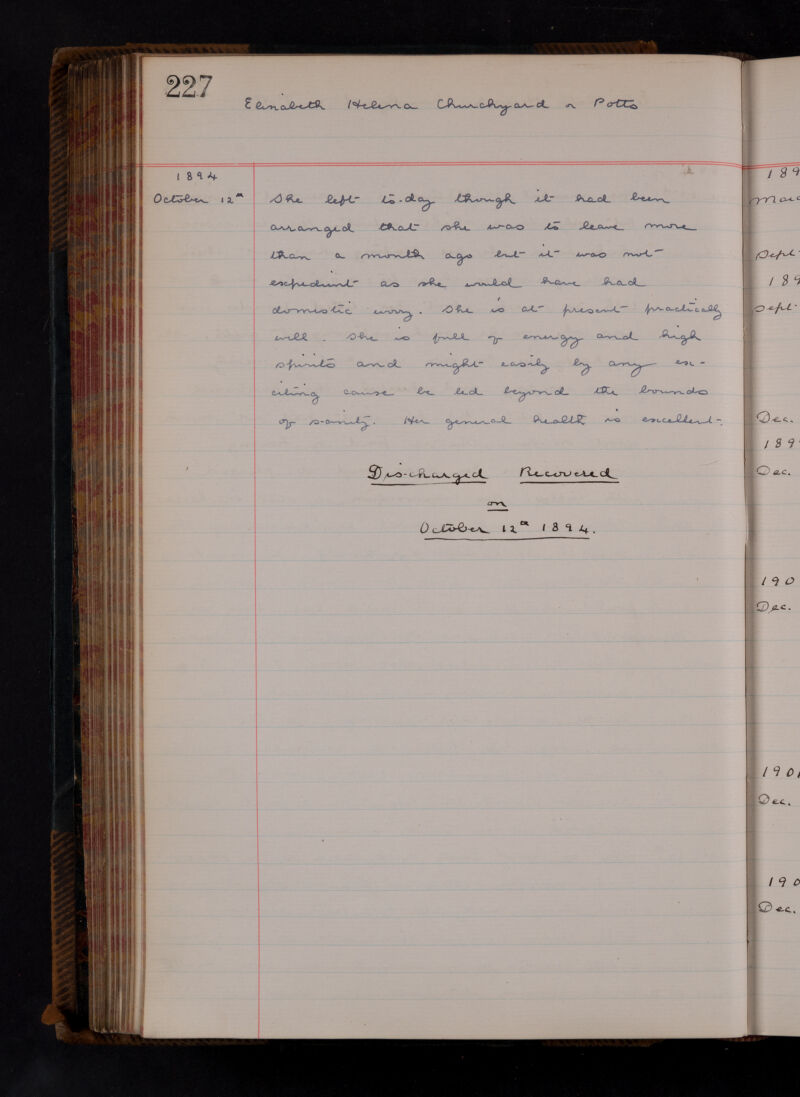 227
Elisabeth Helena Churchyard or Potts
1894
October 12th She left to-day though it had been
arranged that she was to leave more
than a month ago but it was not
expedient as she would have had
domestic worry. She is at present practically
well. She is full of energy and high
spirits and might easily by any ex-
citing cause be led beyond the bounds
of sanity. Her general health is excellent.
Discharged Recovered
on
October 12th 1894.
189
Sept
189
Sept
Dec.
189
Dec.
190
Dec.
1901
Dec.
190
Dec.